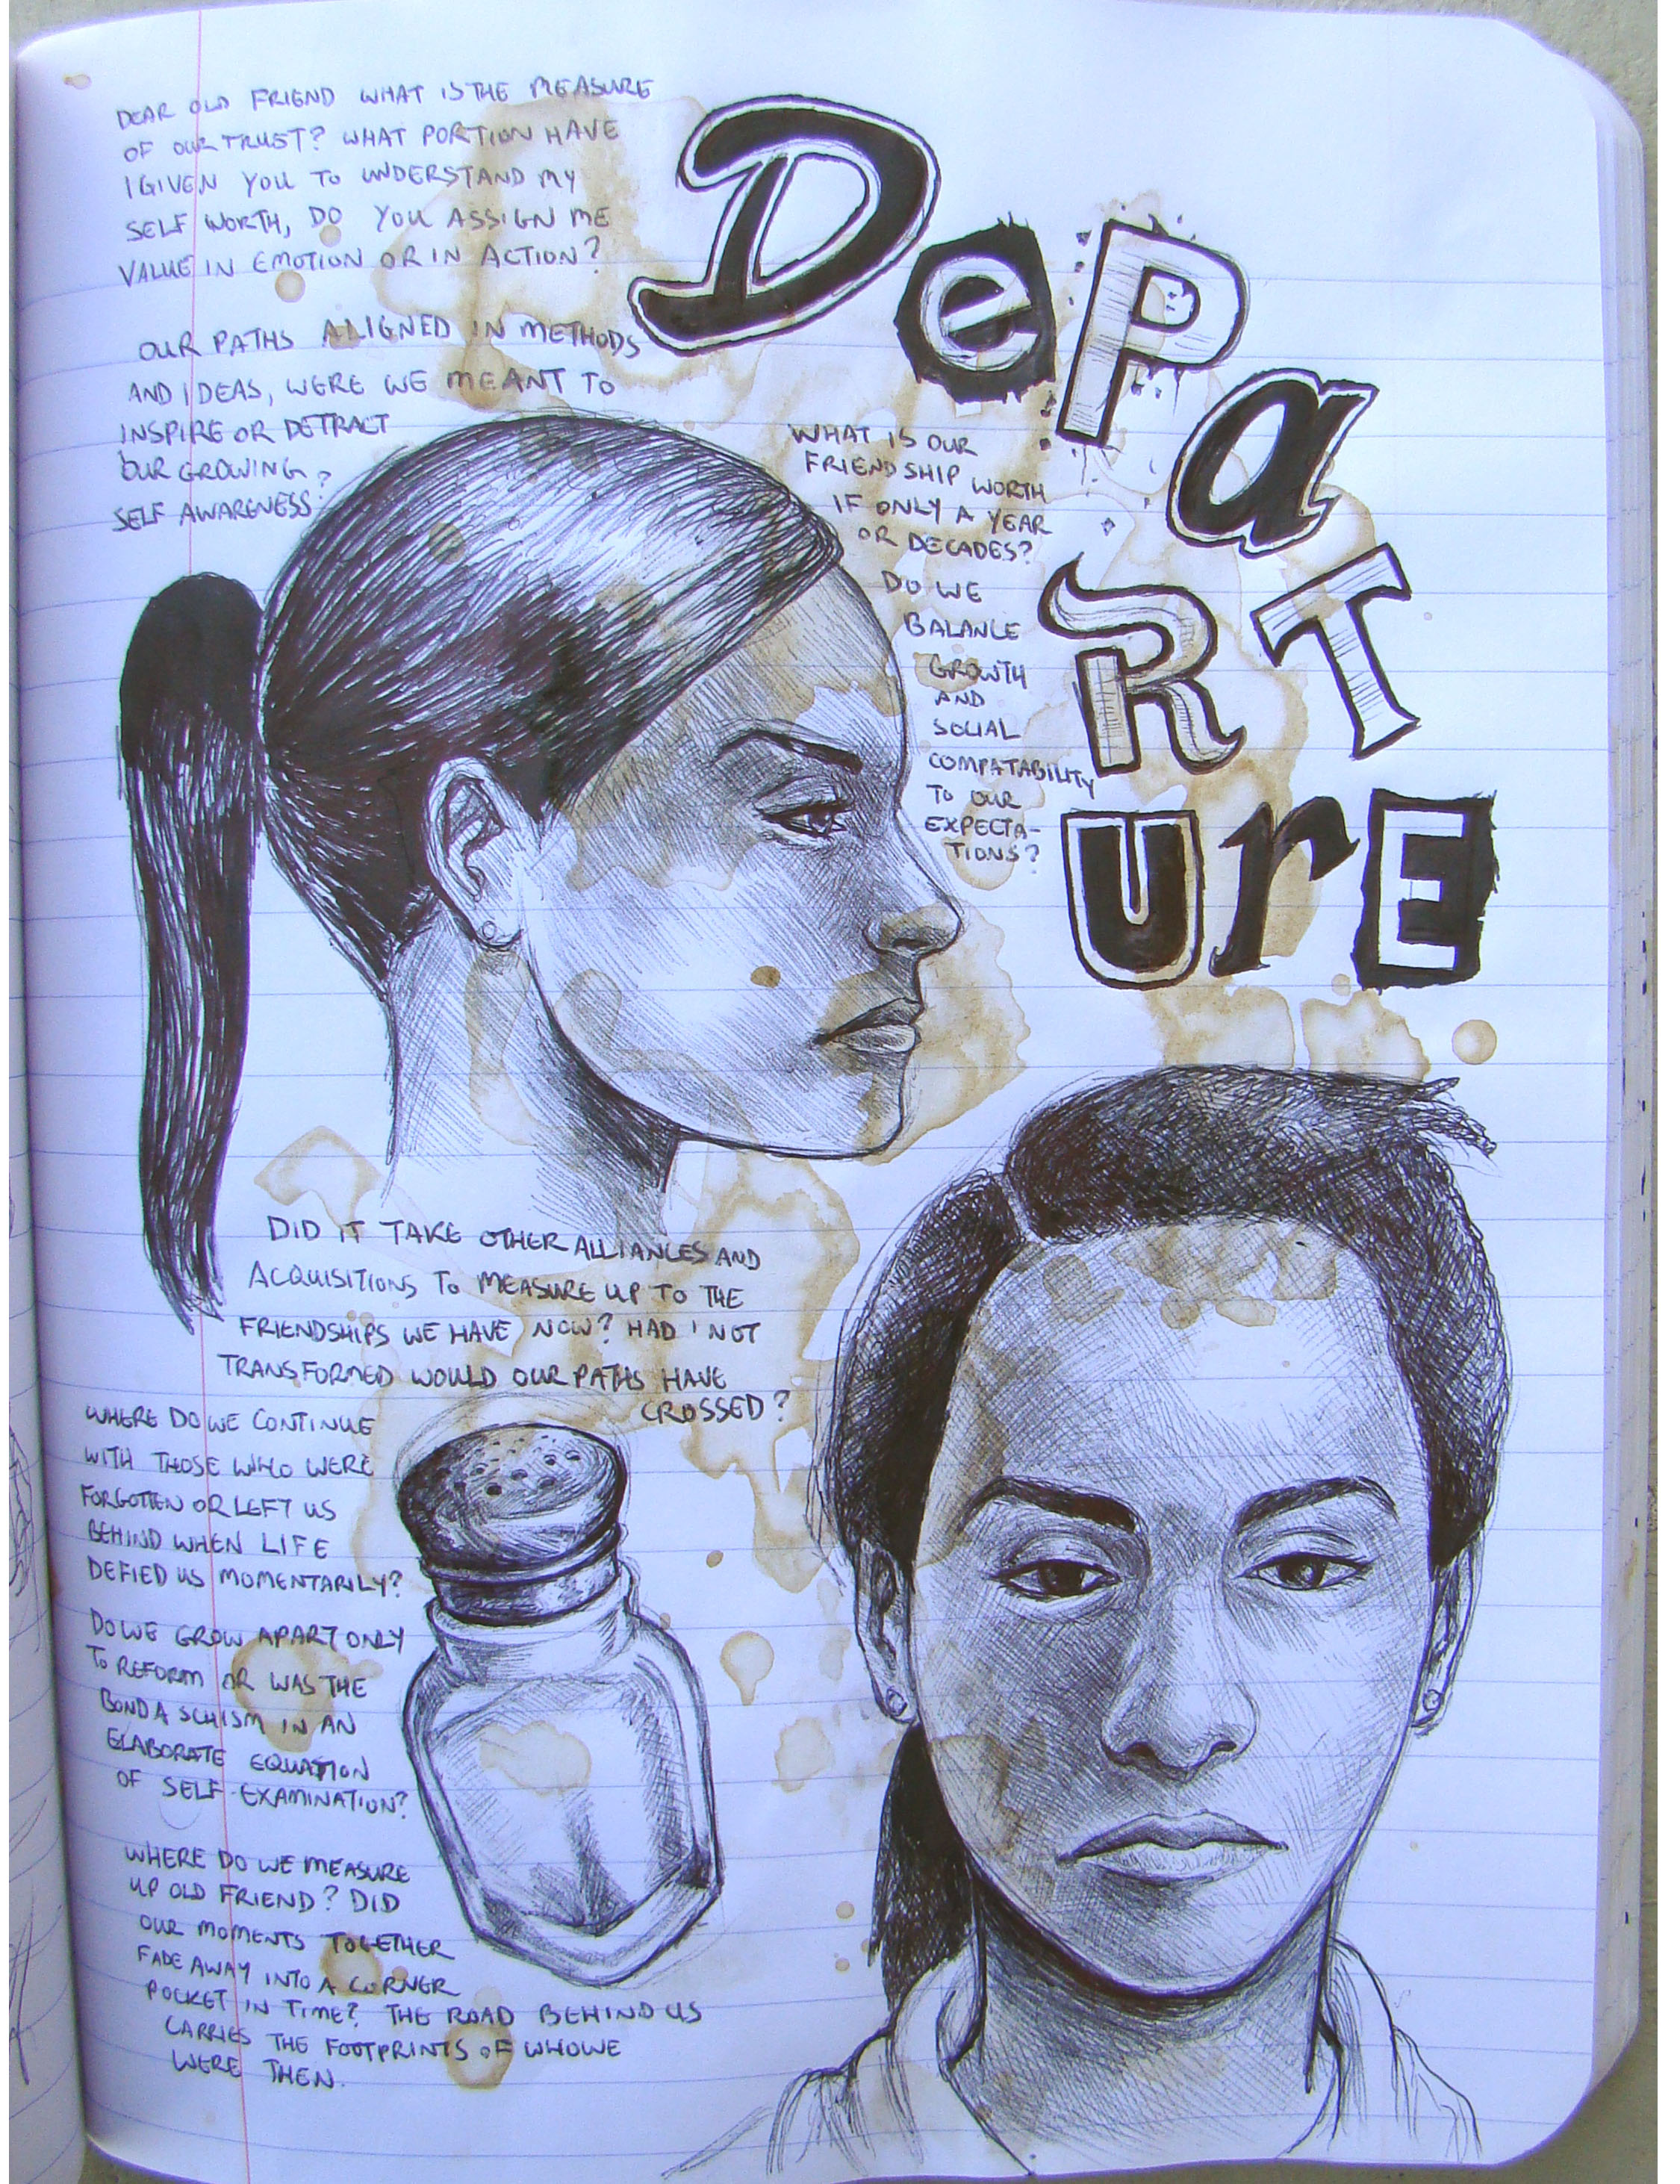 DEAR OLD FRIEND WHAT IS THE MEASURE
OF OUR TRUST? WHAT PORTION HAVE
I GIVEN YOU TO UNDERSTAND MY
SELF WORTH, DO YOU ASSIGN ME
VALUE IN EMOTION OR IN ACTION?
OUR PATHS ALIGNED IN METHODS
AND IDEAS, WERE WE MEANT TO
INSPIRE OR DETRACT
OUR GROWING
SELF AWARENESS?
DePaRTUrE
WHAT IS OUR
FRIENDSHIP WORTH
IF ONLY A YEAR
OR DECADES?
DO WE
BALANCE
GROWTH
AND
SOCIAL
COMPATABILITY
TO OUR
EXPECTA-
TIONS?
DID IT TAKE OTHER ALLIANCES AND
ACQUISITIONS TO MEASURE UP TO THE
FRIENDSHIPS WE HAVE NOW? HAD I NOT
TRANSFORMED WOULD OUR PATHS HAVE
CROSSED?
WHERE DO WE CONTINUE
WITH THOSE WHO WERE
FORGOTTEN OR LEFT US
BEHIND WHEN LIFE
DEFIED US MOMENTARILY?
DO WE GROW APART ONLY
TO REFORM OR WAS THE
BOND A SCHISM IN AN
ELABORATE EQUATION
OF SELF EXAMINATION?
WHERE DO WE MEASURE
UP OLD FRIEND? DID
OUR MOMENTS TOGETHER
FADE AWAY INTO A CORNER
POCKET IN TIME? THE ROAD BEHIND US
CARRIES THE FOOTPRINTS OF WHO WE
WERE THEN.